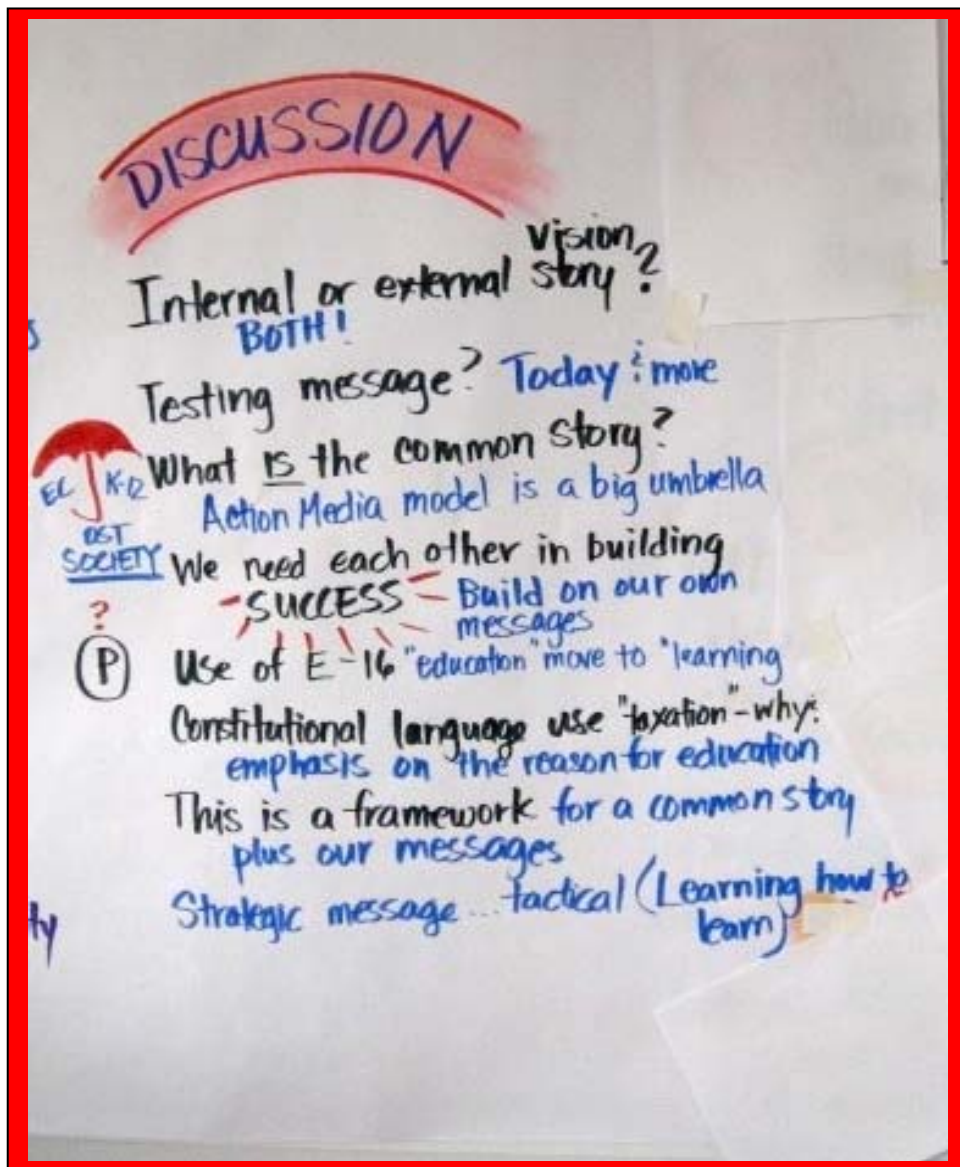 DISCUSSION
vision
Internal or external story?
BOTH!
Testing message? Today & more
What IS the common story?
EC K-12
Action Media model is a big umbrella
OST
SOCIETY
We need each other in building
SUCCESS Build on our own
messages
?
P Use of E-16 "education" move to "learning
Constitutional language use "taxation"-why?
emphasis on the reason for education
This is a framework for a common story
plus our messages
Strategic message... tactical (Learning how to
learn)
ty